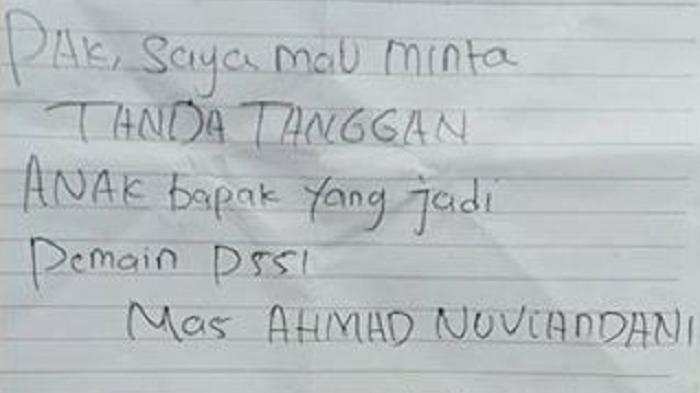 PAK, saya mau minta
TANDA TANGGAN
ANAK bapak yang jadi
Pemain PSSI
Mas AHMAD NUVIANDANI